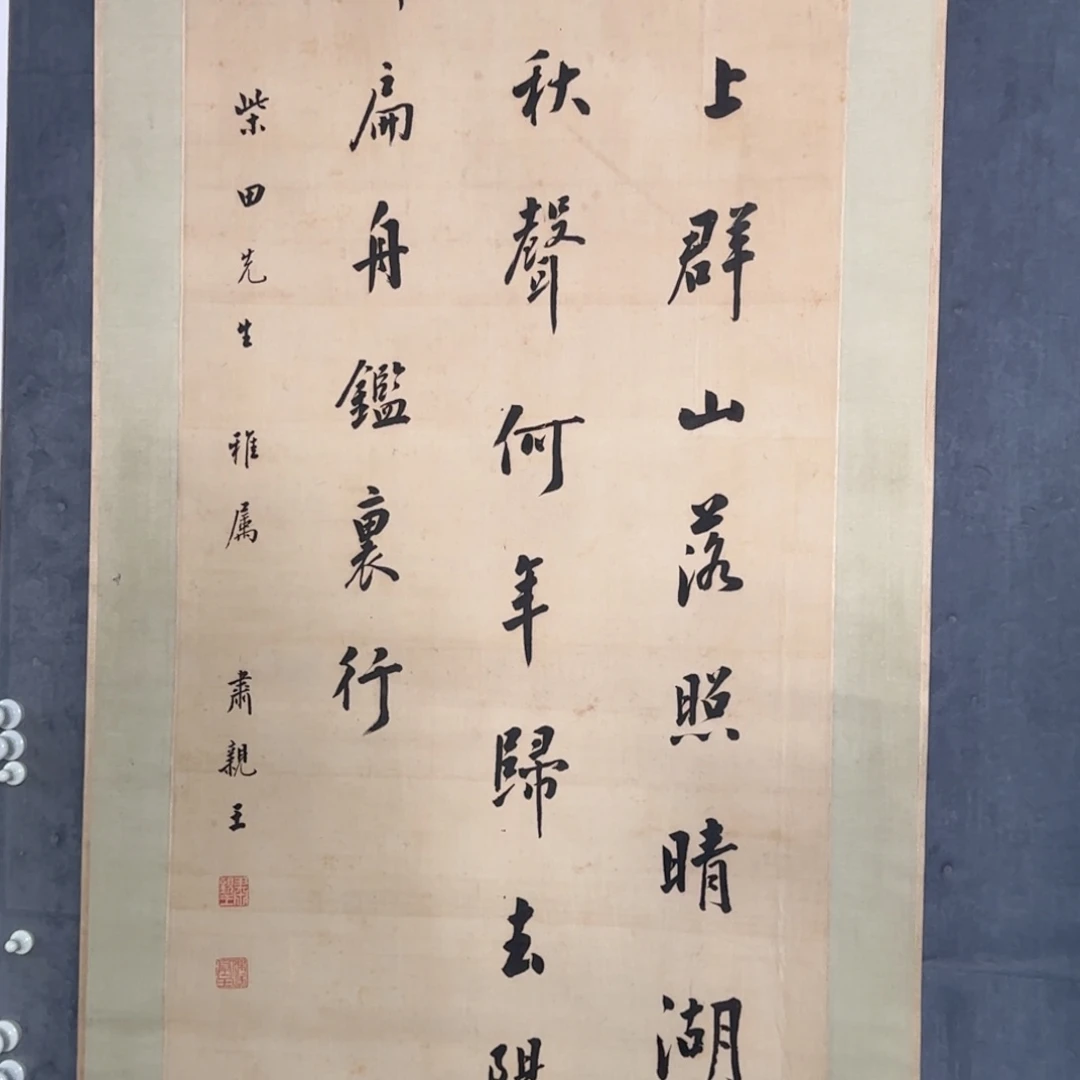 上群山落照晴湖
秋聲何年歸去
扁舟鑑裏行
柴田先生雅属 肅親王